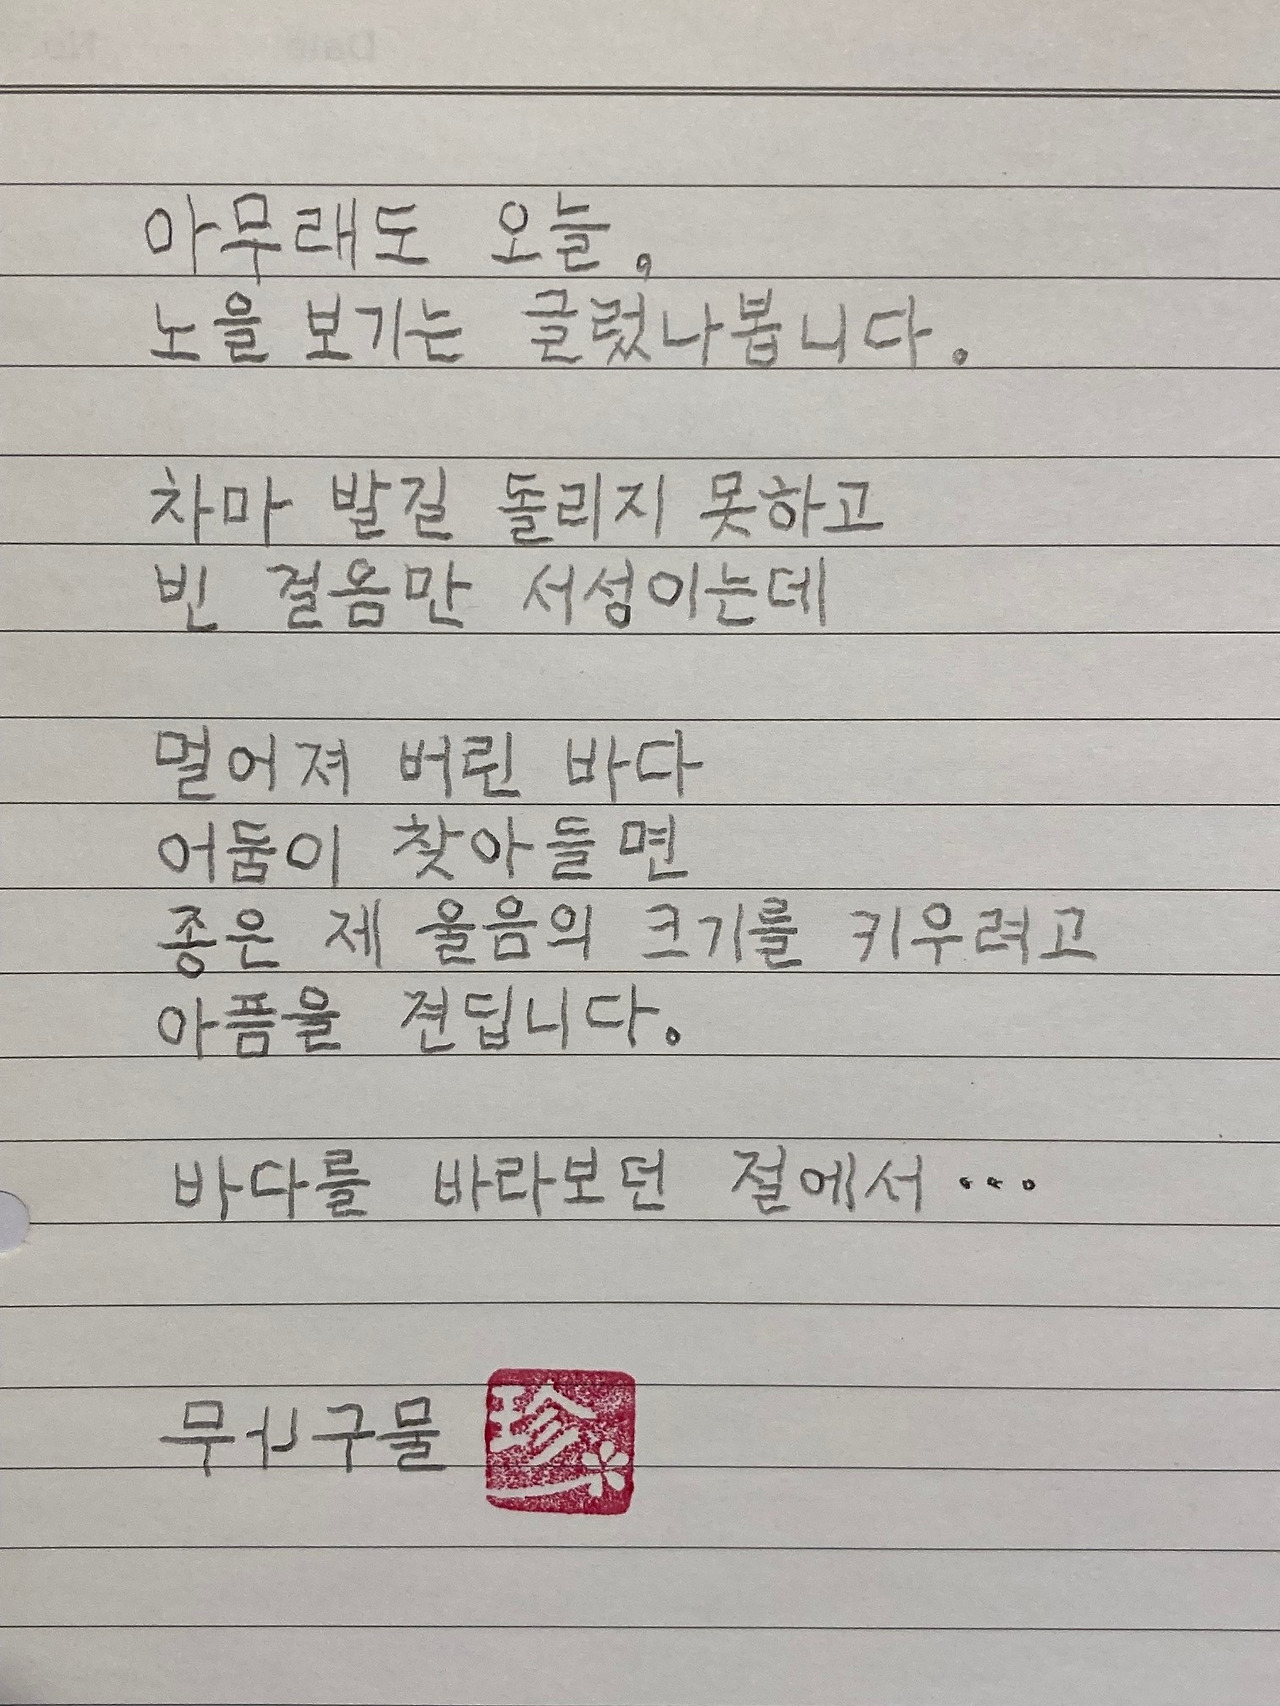 아무래도 오늘,
노을 보기는 글렀나봅니다.
차마 발길 돌리지 못하고
빈 걸음만 서성이는데
멀어져 버린 바다
어둠이 찾아들면
종은 제 울음의 크기를 키우려고
아픔을 견딥니다.
바다를 바라보던 절에서...
珍